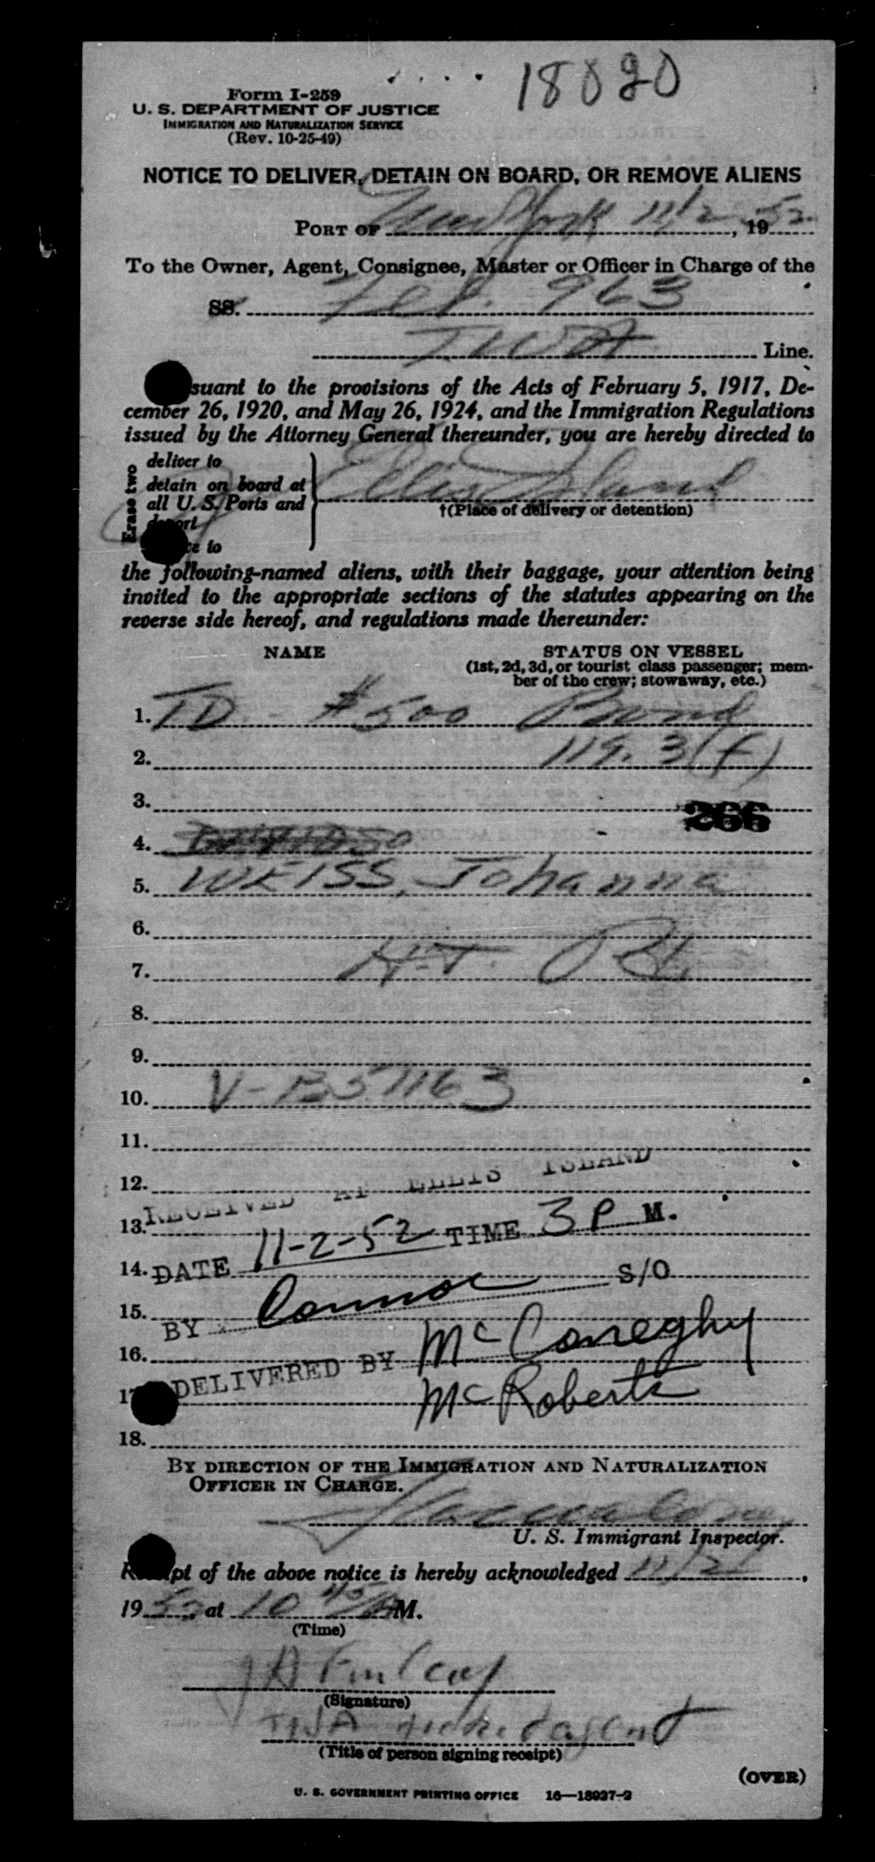 18020
Form I-259
U. S. DEPARTMENT OF JUSTICE
IMMIGRATION AND NATURALIZATION SERVICE
(Rev. 10-25-49)
NOTICE TO DELIVER, DETAIN ON BOARD, OR REMOVE ALIENS
PORT OF New York 11/2, 1952
To the Owner, Agent, Consignee, Master or Officer in Charge of the
SS. 963
TWA Line.
suant to the provisions of the Acts of February 5, 1917, De-
cember 26, 1920, and May 26, 1924, and the Immigration Regulations
issued by the Attorney General thereunder, you are hereby directed to
Erase two
deliver to
detain on board at
all U. S. Ports and
deport
ce to
Ellis Island
†(Place of delivery or detention)
the following-named aliens, with their baggage, your attention being
invited to the appropriate sections of the statutes appearing on the
reverse side hereof, and regulations made thereunder:
NAME STATUS ON VESSEL
(1st, 2d, 3d, or tourist class passenger; mem-
ber of the crew; stowaway, etc.)
1. TD - $500 Bond
2. 119.3(f)
3. 266
4.
5. WEISS, Johanna
6.
7. H.T.
8.
9.
10. V-B51163
11.
12.
RECEIVED AT ELLIS ISLAND
13.
14. DATE 11-2-52 TIME 3 P M.
15. BY Connor S/O
16. DELIVERED BY McConeghy
17 McRoberts
18.
BY DIRECTION OF THE IMMIGRATION AND NATURALIZATION
OFFICER IN CHARGE.
U. S. Immigrant Inspector.
Receipt of the above notice is hereby acknowledged 11/2,
1952, at 10 45/AM.
(Time)
J A Finlay
(Signature)
TWA agent
(Title of person signing receipt)
(OVER)
U. S. GOVERNMENT PRINTING OFFICE 16—18937-2